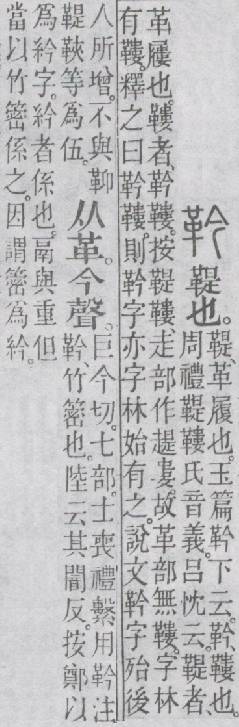 靲鞮也。
鞮、革履也。玉篇靲下云。靲、鞻也。
周禮鞮鞻氏音義。呂忱云。鞮者、
革屨也。鞻者、靲鞻。按鞮鞻、走部作趧婁。故革部無鞻。字林
有鞻。釋之曰靲鞻。則靲字亦字林始有之。說文靲字殆後
人所增。不與䩕
鞮鞅等爲伍。
从革。今聲。
巨今切。七部。士喪禮繫用靲。注
靲、竹䈼也。陸云其闇反。按鄭以
爲紟字。紟者係也。鬲與重但
當以竹䈼係之。因謂䈼爲紟。